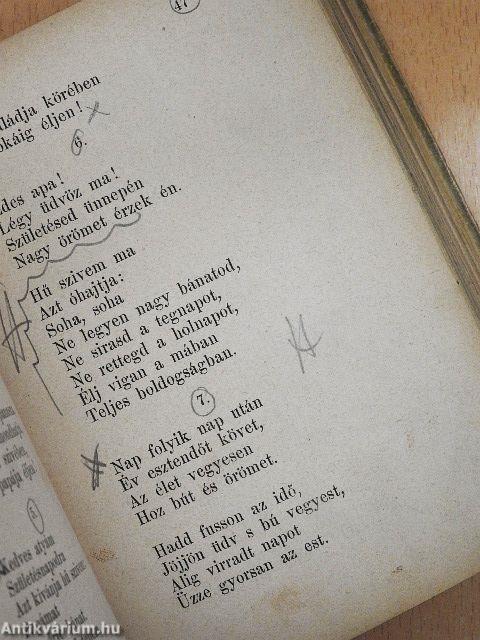 47
ládja körében
okáig éljen!
6.
des apa!
Légy üdvöz ma!
Születésed ünnepén
Nagy örömet érzek én.
Hű szivem ma
Azt óhajtja:
Soha, soha
Ne legyen nagy bánatod,
Ne sirasd a tegnapot,
Ne rettegd a holnapot,
Élj vigan a mában
Teljes boldogságban.
7.
Nap folyik nap után
Év esztendőt követ,
Az élet vegyesen
Hoz bút és örömet.
Hadd fusson az idő,
Jöjjön üdv s bú vegyest,
Alig virradt napot
Üzze gyorsan az est.
szivében,
papája éjei
5.
Kedves atyám
Születésnapedra
Azt kivánja hű
Antikvárium.hu